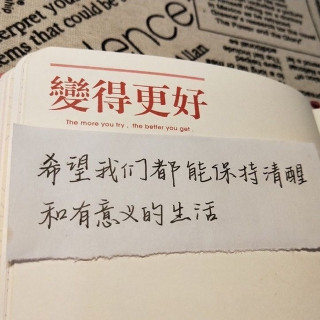 nterpret y
ems that could be
ence
變得更好
The more you try , the better you get .
希望我们都能保持清醒
和有意义的生活